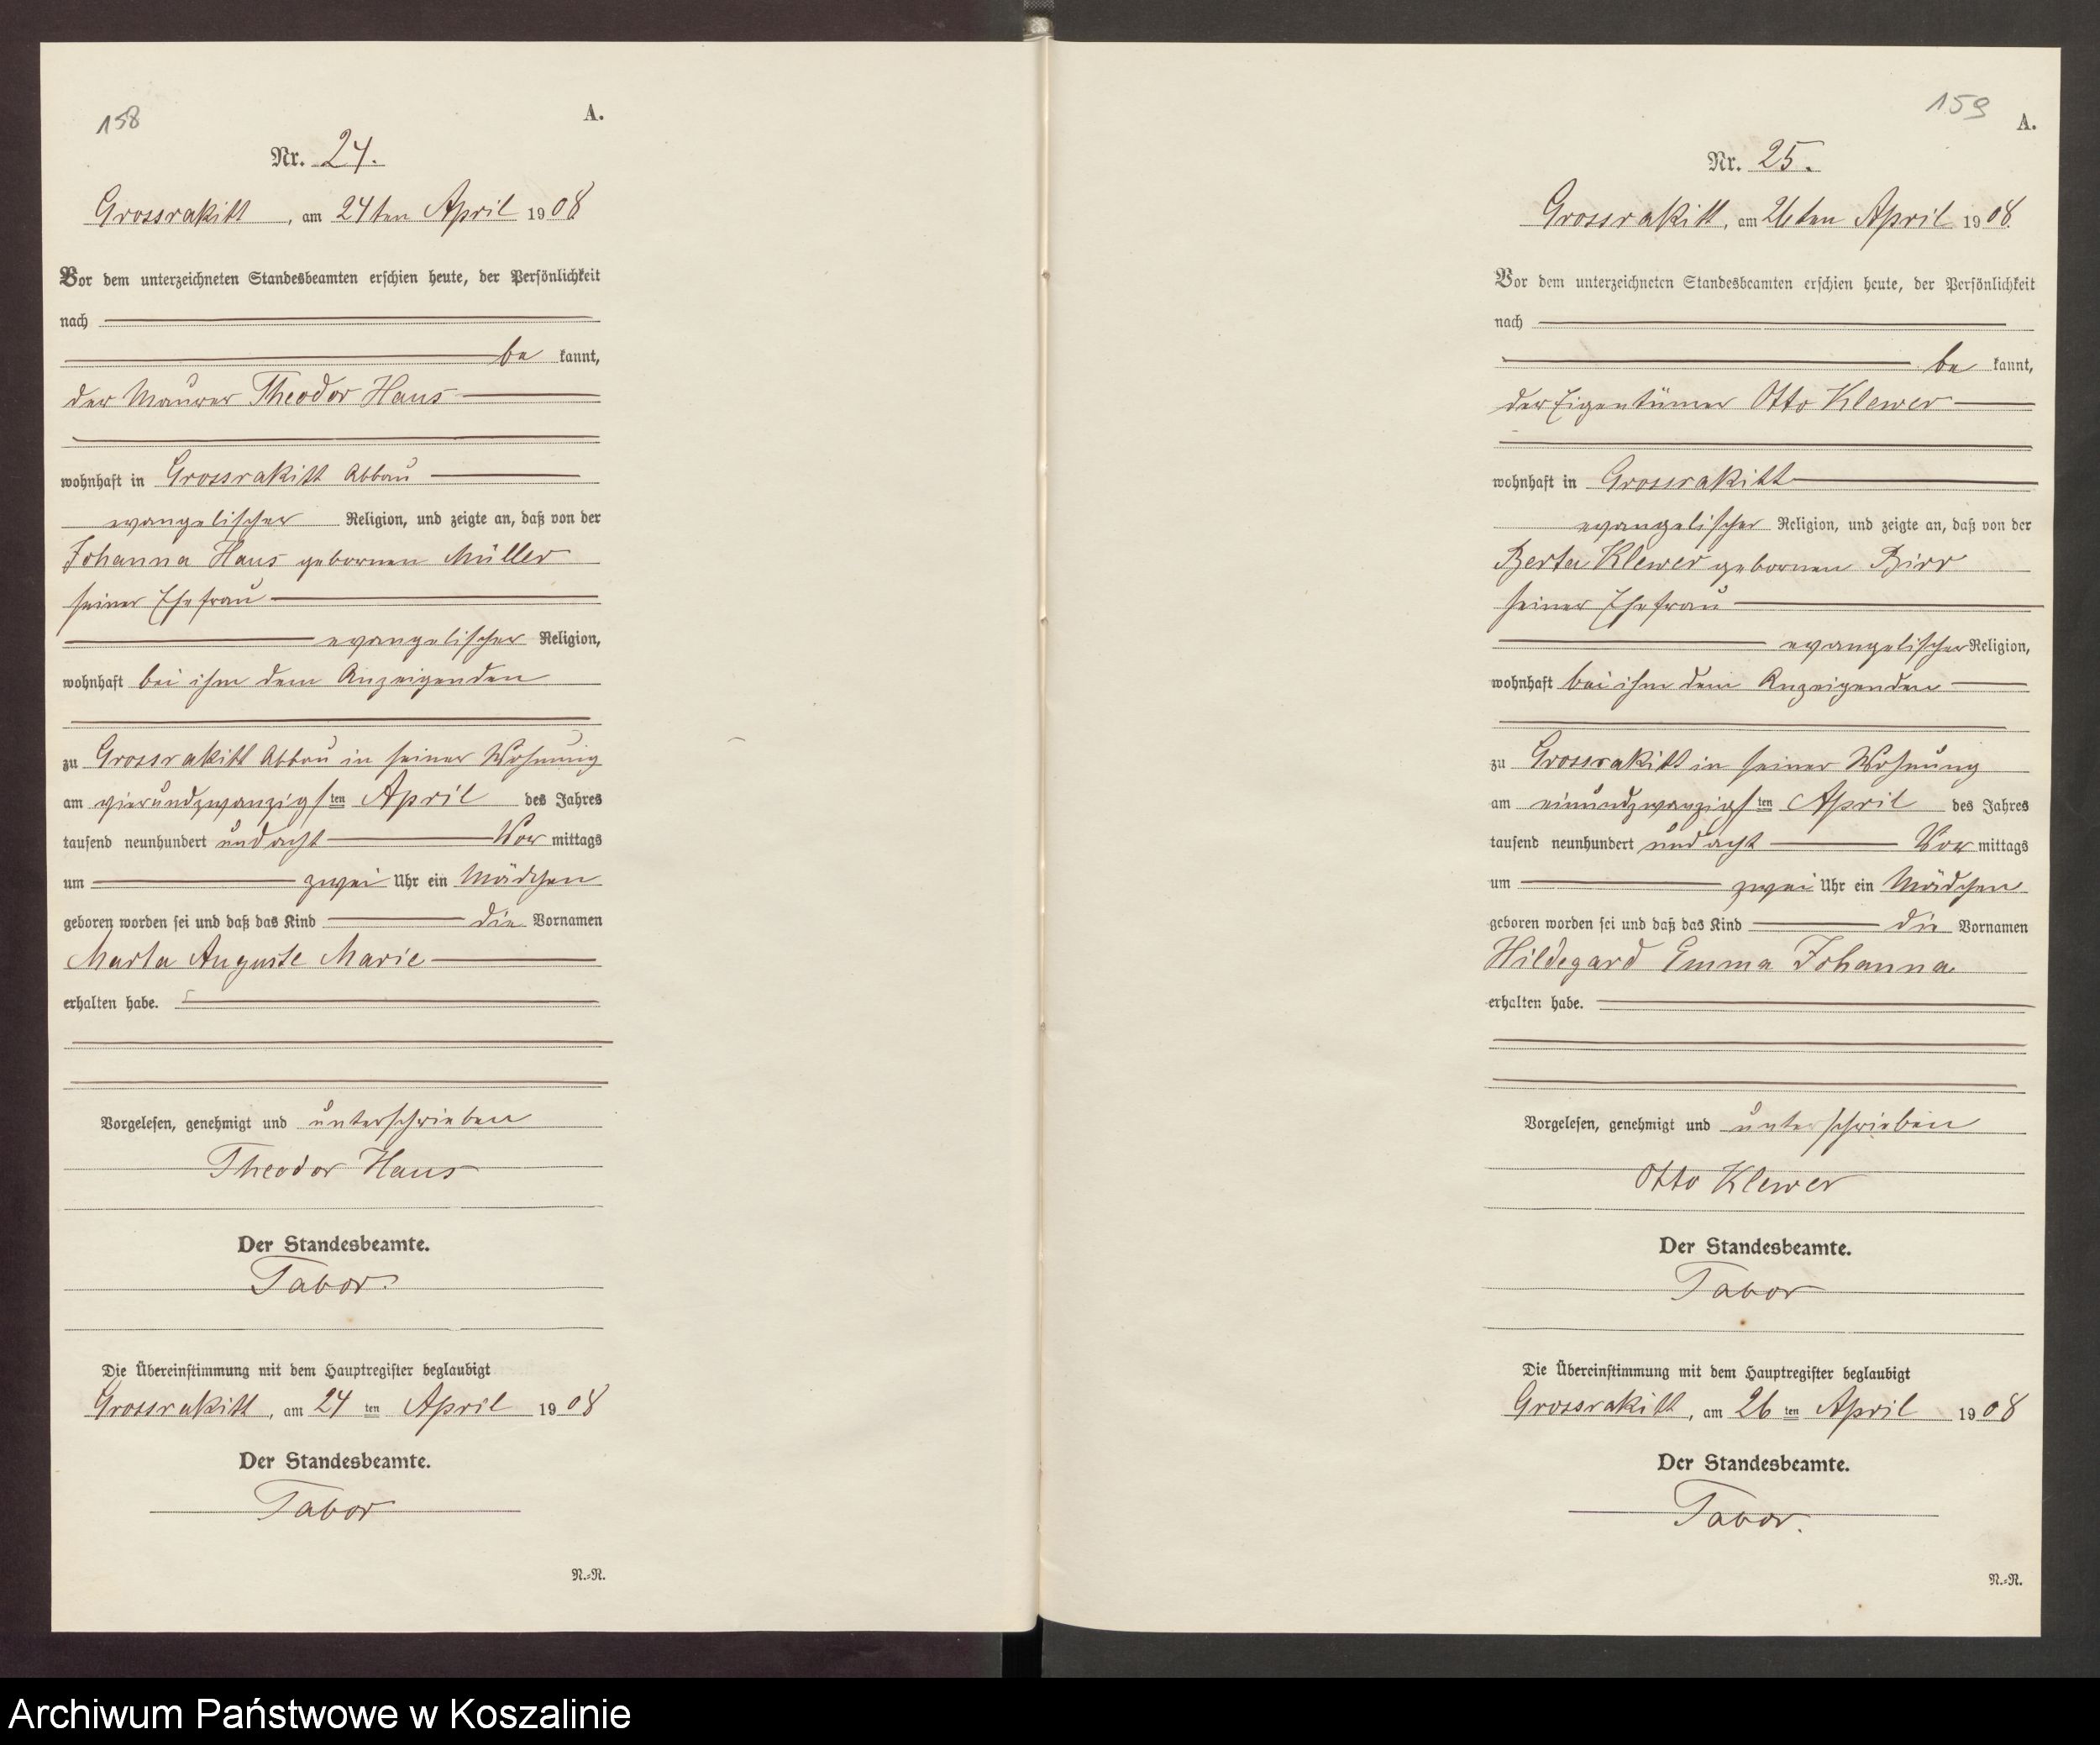 158
A.
Nr. 24.
Grossrakitt, am 24ten April 1908
Vor dem unterzeichneten Standesbeamten erschien heute, der Persönlichkeit
nach
be kannt,
der Maurer Theodor Haus
wohnhaft in Grossrakitt Abbau
evangelischer Religion, und zeigte an, daß von der
Johanna Haus gebornen Müller
seiner Ehefrau
evangelischer Religion,
wohnhaft bei ihm dem Anzeigenden
zu Grossrakitt Abbau in seiner Wohnung
am vierundzwanzigsten April des Jahres
tausend neunhundert und acht Vor mittags
um zwei Uhr ein Mädchen
geboren worden sei und daß das Kind die Vornamen
Marta Auguste Marie
erhalten habe.
Vorgelesen, genehmigt und unterschrieben
Theodor Haus
Der Standesbeamte.
Tabor.
Die Übereinstimmung mit dem Hauptregister beglaubigt
Grossrakitt, am 24 ten April 1908
Der Standesbeamte.
Tabor
N.=R.
159
A.
Nr. 25.
Grossrakitt, am 26ten April 1908.
Vor dem unterzeichneten Standesbeamten erschien heute, der Persönlichkeit
nach
be kannt,
der Eigentümer Otto Klewer
wohnhaft in Grossrakitt
evangelischer Religion, und zeigte an, daß von der
Berta Klewer gebornen Birr
seiner Ehefrau
evangelischer Religion,
wohnhaft bei ihm dem Anzeigenden
zu Grossrakitt in seiner Wohnung
am einundzwanzigsten April des Jahres
tausend neunhundert und acht Vor mittags
um zwei Uhr ein Mädchen
geboren worden sei und daß das Kind die Vornamen
Hildegard Emma Johanna
erhalten habe.
Vorgelesen, genehmigt und unterschrieben
Otto Klewer
Der Standesbeamte.
Tabor
Die Übereinstimmung mit dem Hauptregister beglaubigt
Grossrakitt, am 26 ten April 1908
Der Standesbeamte.
Tabor.
N.=R.
Archiwum Państwowe w Koszalinie